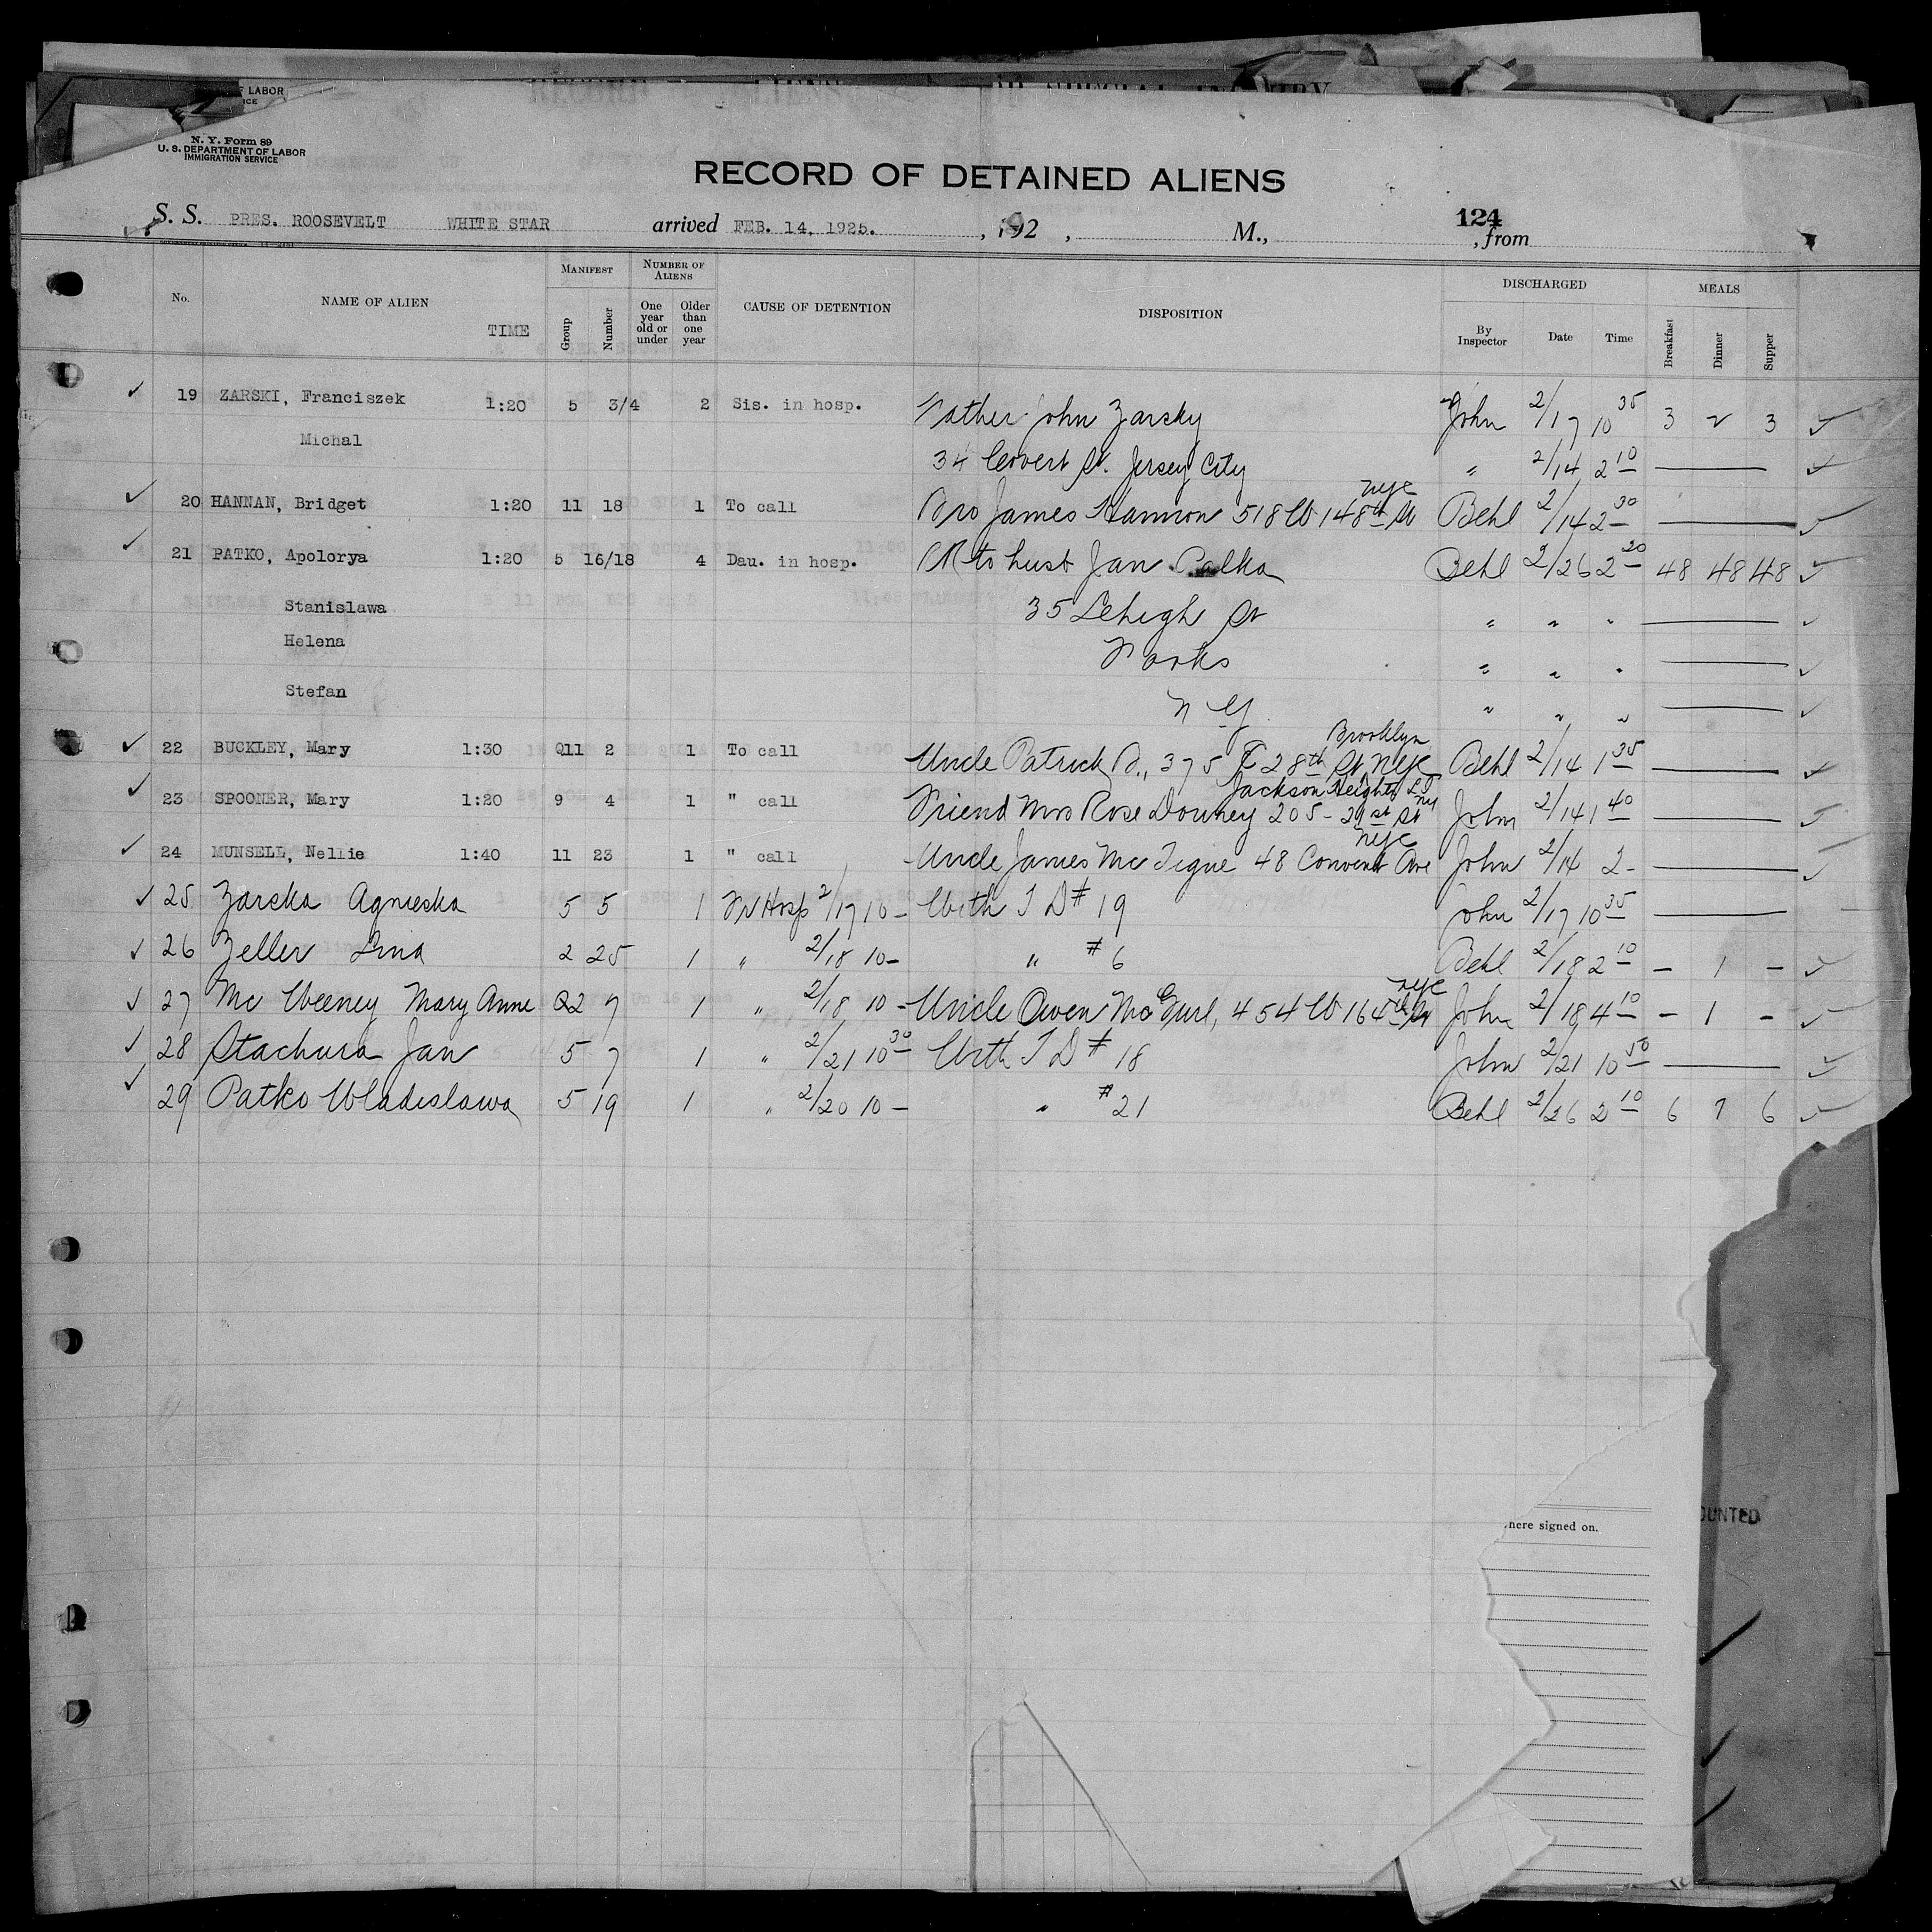 F LABOR
ICE
N. Y. Form 89
U. S. DEPARTMENT OF LABOR
IMMIGRATION SERVICE
RECORD OF DETAINED ALIENS
124
S. S. PRES. ROOSEVELT WHITE STAR arrived FEB. 14, 1925. , 192 , M., , from
No. NAME OF ALIEN TIME MANIFEST Group Number NUMBER OF ALIENS One year old or under Older than one year CAUSE OF DETENTION DISPOSITION DISCHARGED By Inspector Date Time MEALS Breakfast Dinner Supper
✓ 19 ZARSKI, Franciszek 1:20 5 3/4 2 Sis. in hosp. Father John Zarsky John 2/17 10 35 3 2 3 ✓
Michal 34 Covert St. Jersey City " 2/14 2 10 — ✓
✓ 20 HANNAN, Bridget 1:20 11 18 1 To call Bro James Hannon 518 W 148th St NYC Behl 2/14 2 30 — ✓
✓ 21 PATKO, Apolorya 1:20 5 16/18 4 Dau. in hosp. to husb Jan Behl 2/26 2 20 48 48 48 ✓
Stanislawa 35 Lehigh St " " " — ✓
Helena " " " — ✓
Stefan N Y " " " — ✓
✓ 22 BUCKLEY, Mary 1:30 Q11 2 1 To call Uncle Patrick B., 375 E 28th St NYC Brooklyn Behl 2/14 1 35 — ✓
✓ 23 SPOONER, Mary 1:20 9 4 1 " call Friend Mrs Rose Downey 205 - 29st St Jackson Heights LI NY John 2/14 1 40 — ✓
✓ 24 MUNSELL, Nellie 1:40 11 23 1 " call Uncle James McTigue 48 Convent Ave NYC John 2/14 2- — ✓
✓ 25 Zarska Agnieska 5 5 1 In Hosp 2/17 10- With T D # 19 John 2/17 10 35 —
✓ 26 Zeller Lina 2 25 1 " 2/18 10- " # 6 Behl 2/18 2 10 - 1 - ✓
✓ 27 McWeeney Mary Anne Q2 7 1 " 2/18 10 - Uncle Owen McGurl, 454 W 164th St NYC John 2/18 4 10 - 1 - ✓
✓ 28 Stachura Jan 5 7 1 " 2/21 10 30 With T D # 18 John 2/21 10 50 — ✓
✓ 29 Patko Wladislawa 5 19 1 " 2/20 10 - " # 21 Behl 2/26 2 10 6 7 6 ✓
here signed on.
OUNTED